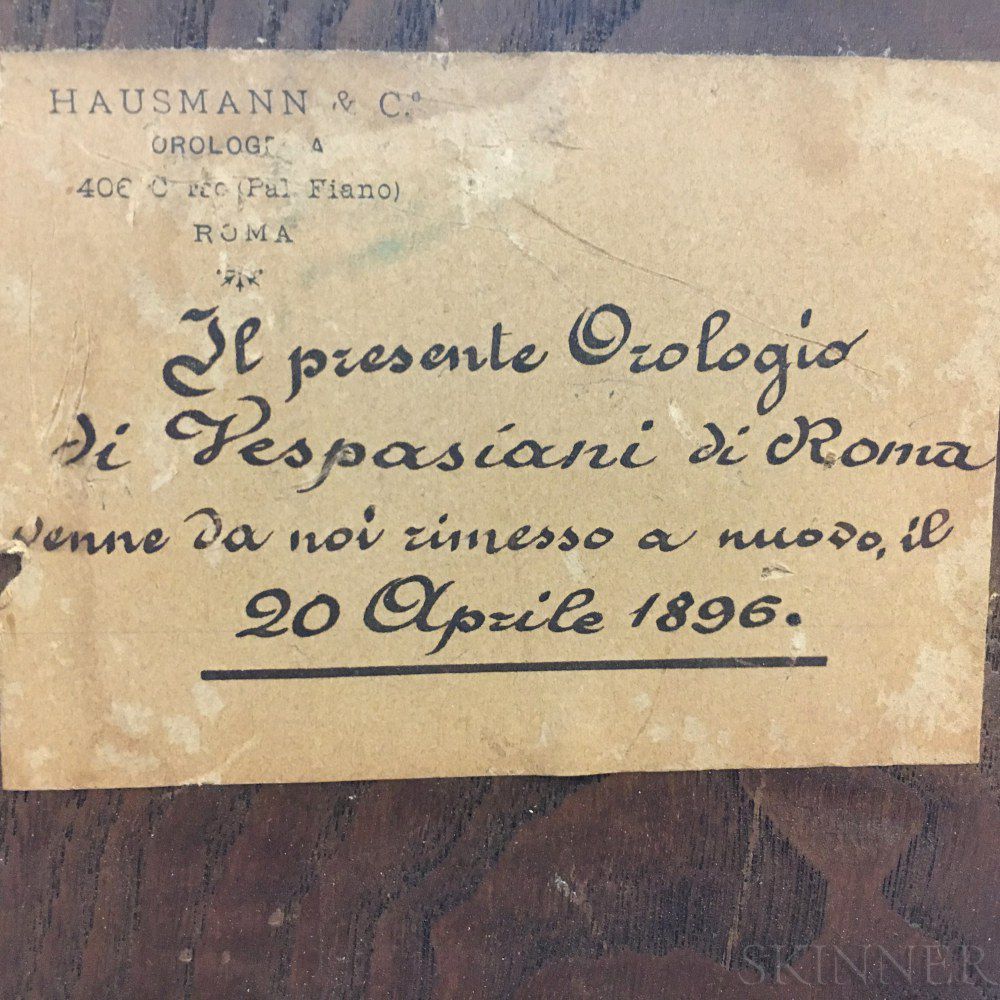 HAUSMANN & Cº
406 (Pal. Fiano)
ROMA
Il presente Orologio
di Vespasiani di Roma
venne da noi rimesso a nuovo, il
20 Aprile 1896.
SKINNER